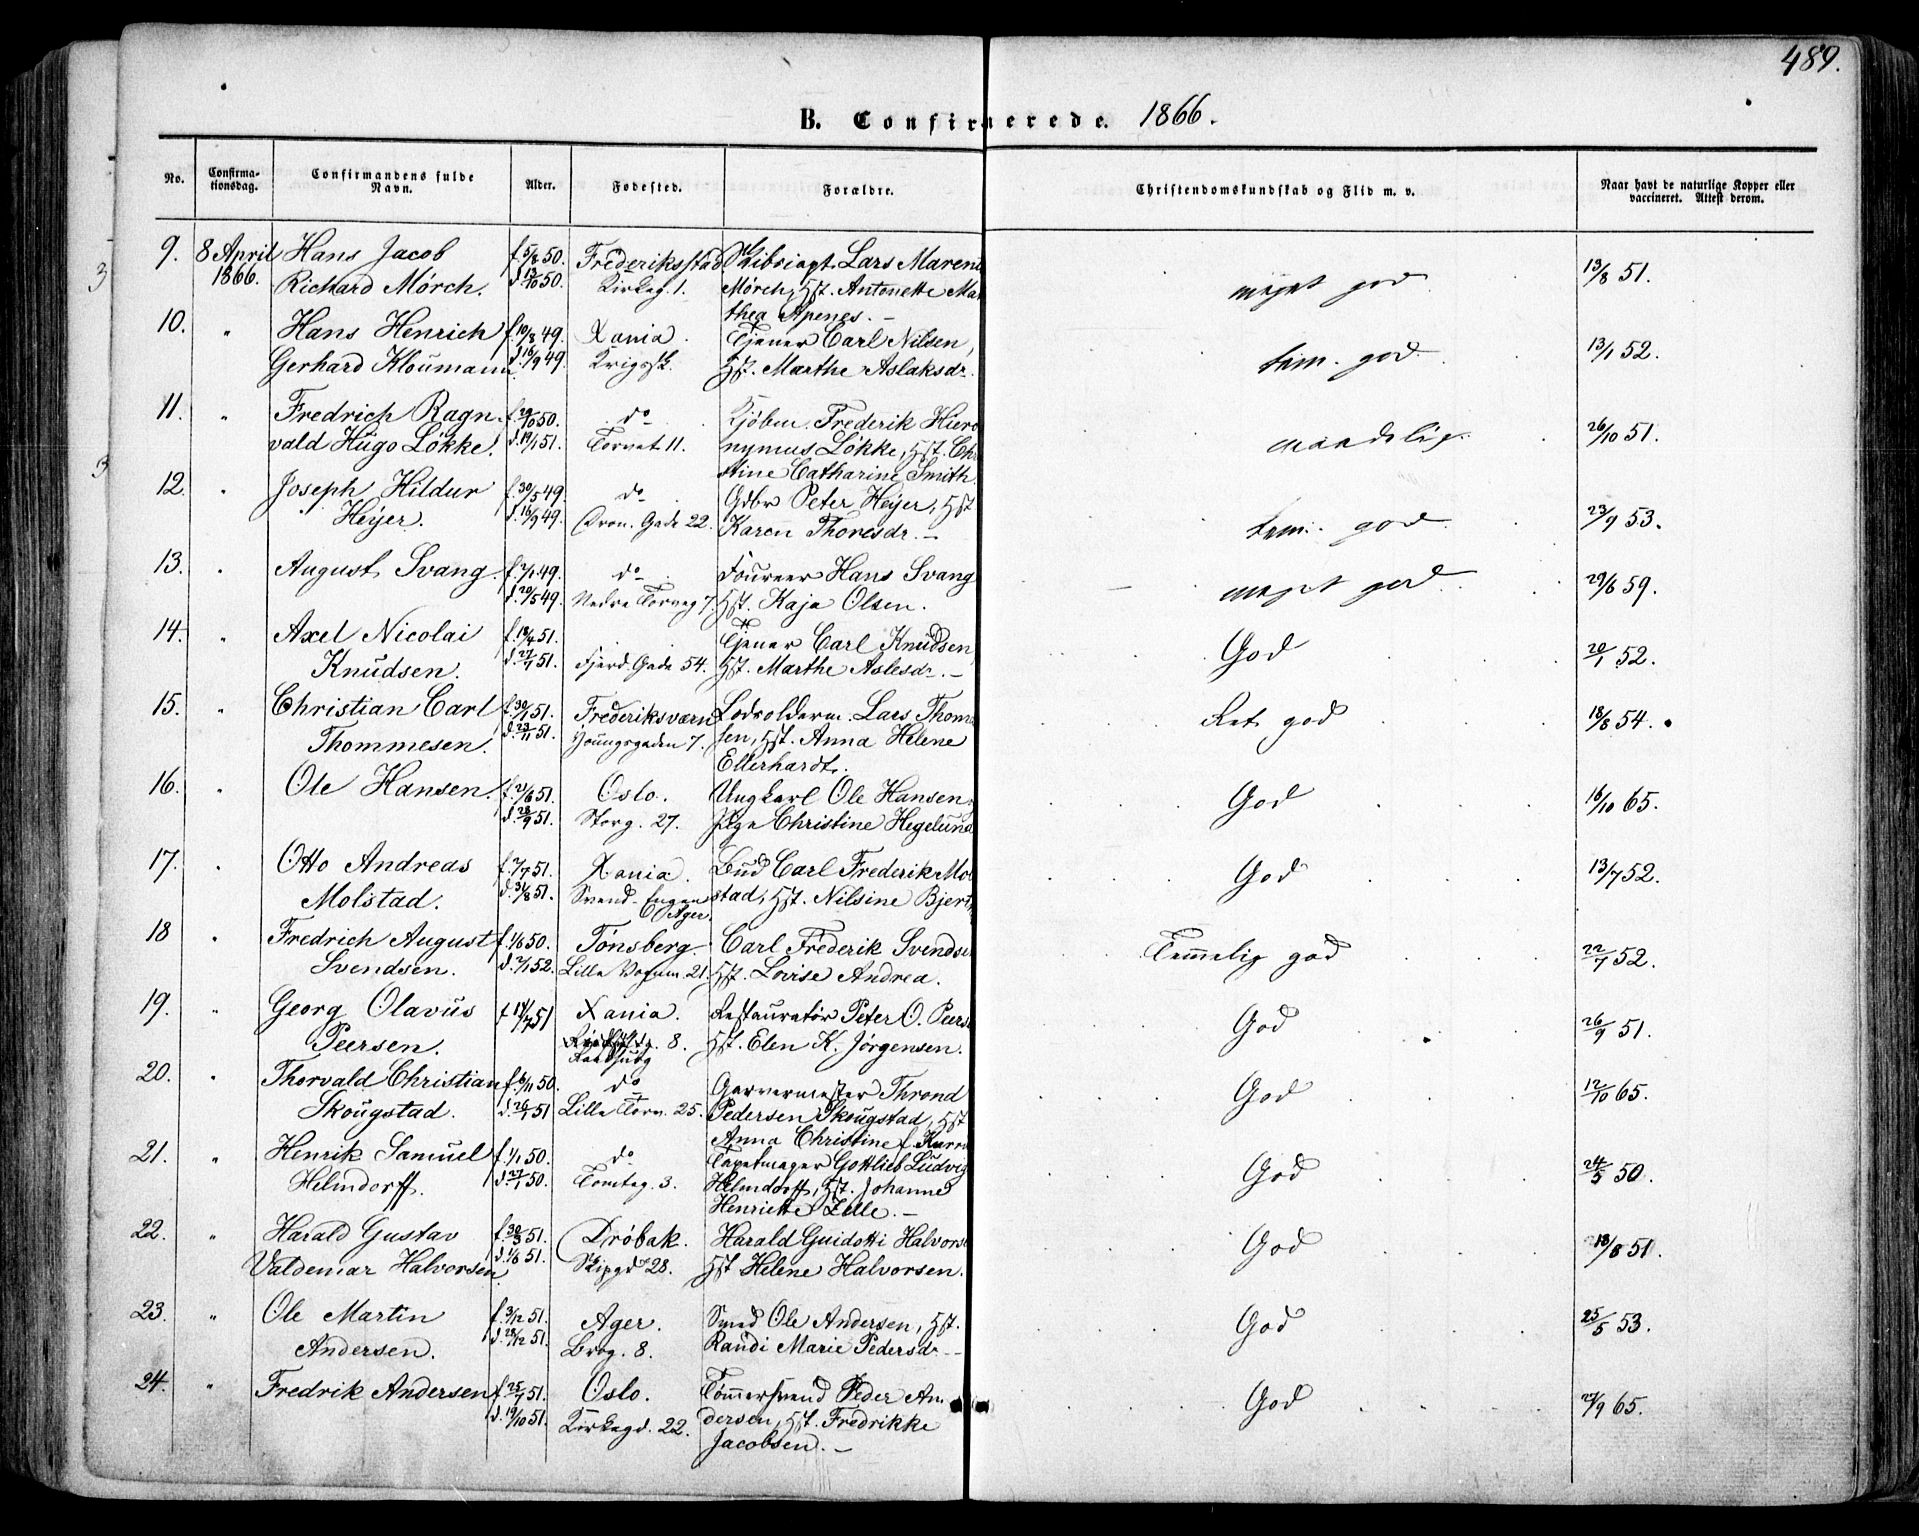 489.
B. Confirmerede. 1866.
No. Confirmationsdag. Confirmandens fulde Navn. Alder. Fødested. Forældre. Christendomskundskab og Flid m. v. Naar havt de naturlige Kopper eller vaccineret. Attest derom.
9. 8 April Hans Jacob f. 5/8 50. Frederiksstad Lars
1866. Richard Mörch. d. 13/10 50. Kirkeg. 1. Mörch, Hst. Antonette Ma meget god 13/8 51.
thea Apenes. —
10. " Hans Henrich f. 19/8 49. Xania. Tjener Carl Nilsen,
Gerhard Kloumann d. 16/9 49. Krigssk. Hst. Marthe Aslaksdr. tem. god 13/1 52.
11. " Fredrich Ragn- f. 29/10 50. do Kjøbm. Frederik Hiero
vald Hugo Lökke. d. 19/1 51. Torvet 11. nymus Lökke, Hst. Chri maadelig. 26/10 51.
stine Catharine Smith.
12. " Joseph Hildur f. 30/5 49. do Gdbr Peter Heyer, Hst
Heyer. d. 16/9 49. Dron. Gade 22. Karen Thoresdr. — tem. god 23/9 53.
13. " August Svang. f. 2/1 49. do Foureer Hans Svang
d. 20/5 49. Nedre Torveg 7. Hst. Kaja Olsen. meget god 29/6 59.
14. " Axel Nicolai f. 18/4 51. Tjener Carl Knudsen,
Knudsen. d. 27/7 51. Fjerd. Gade 54. Hst. Marthe Aslesdr. — God 20/1 52.
15. " Christian Carl f. 30/1 51. Frederiksværn Lodsolderm. Lars Thom
Thommesen. d. 23/11 51. Youngsgaden 7. sen, Hst. Anna Helene Ret god 18/8 54.
Ellerhardt.
16. " Ole Hansen. f. 21/6 51. Oslo. Ungkarl Ole Hansen,
d. 28/9 51. Storg. 27. Pige Christine Hegelund God 16/10 65.
17. " Otto Andreas f. 7/7 51. Xania. Bud Carl Frederik Mol
Molstad. d. 31/8 51. Svend-Engen stad, Hst. Nilsine Bjert God 13/7 52.
Ager.
18 " Fredrich August f. 1/6 50. Tönsberg. Carl Frederik Svendse
Svendsen. d. 2/1 52. Lille Vognm. 21. Hst. Lovise Andrea. Temmelig god 22/7 52.
19. " Georg Olavus f. 14/7 51 Xania. Restauratör Peter O. Peers
Peersen. 8. Hst. Elen K. Jörgensen. God 26/9 51.
Raadhusg
20. " Thorvald Christian f. 6/11 50. do Garvermester Thrond
Skougstad. d. 26/1 51 Lille Torv. 25. Pedersen Skougstad, Hst God 12/10 65.
Anna Christine f.
21. " Henrik Samuel f. 1/1 50. do Tapetmager Gottlieb Ludvig
Helmdorff. d. 27/1 50. Toldbg. 3. Helmdorff, Hst. Johanne God 24/5 50.
Henriette Zelle. —
22. " Harald Gustav f. 30/3 51. Dröbak. Harald Guidotti Halvors
Valdemar Halvorsen d. 1/6 51. Skippgd 28. Hst Helene Halvorsen. God 18/8 51.
23. " Ole Martin f. 3/12 51. Ager. Smed Ole Andersen, Hst.
Andersen. d. 28/12 51. Brog. 8. Randi Marie Pedersdr. — God 25/5 53.
24. " Fredrik Andersen f. 25/7 51. Oslo. Tömmersvend Peder An
d. 19/10 51. Kirkegd. 22. dersen, Hst. Fredrikke God 27/9 65.
Jacobsen. —